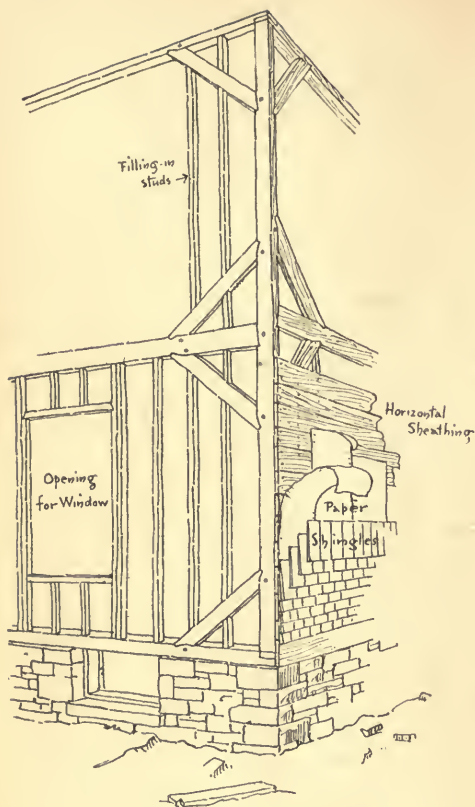 Filling-in
studs
Horizontal
Sheathing
Opening
for Window
Paper
Shingles